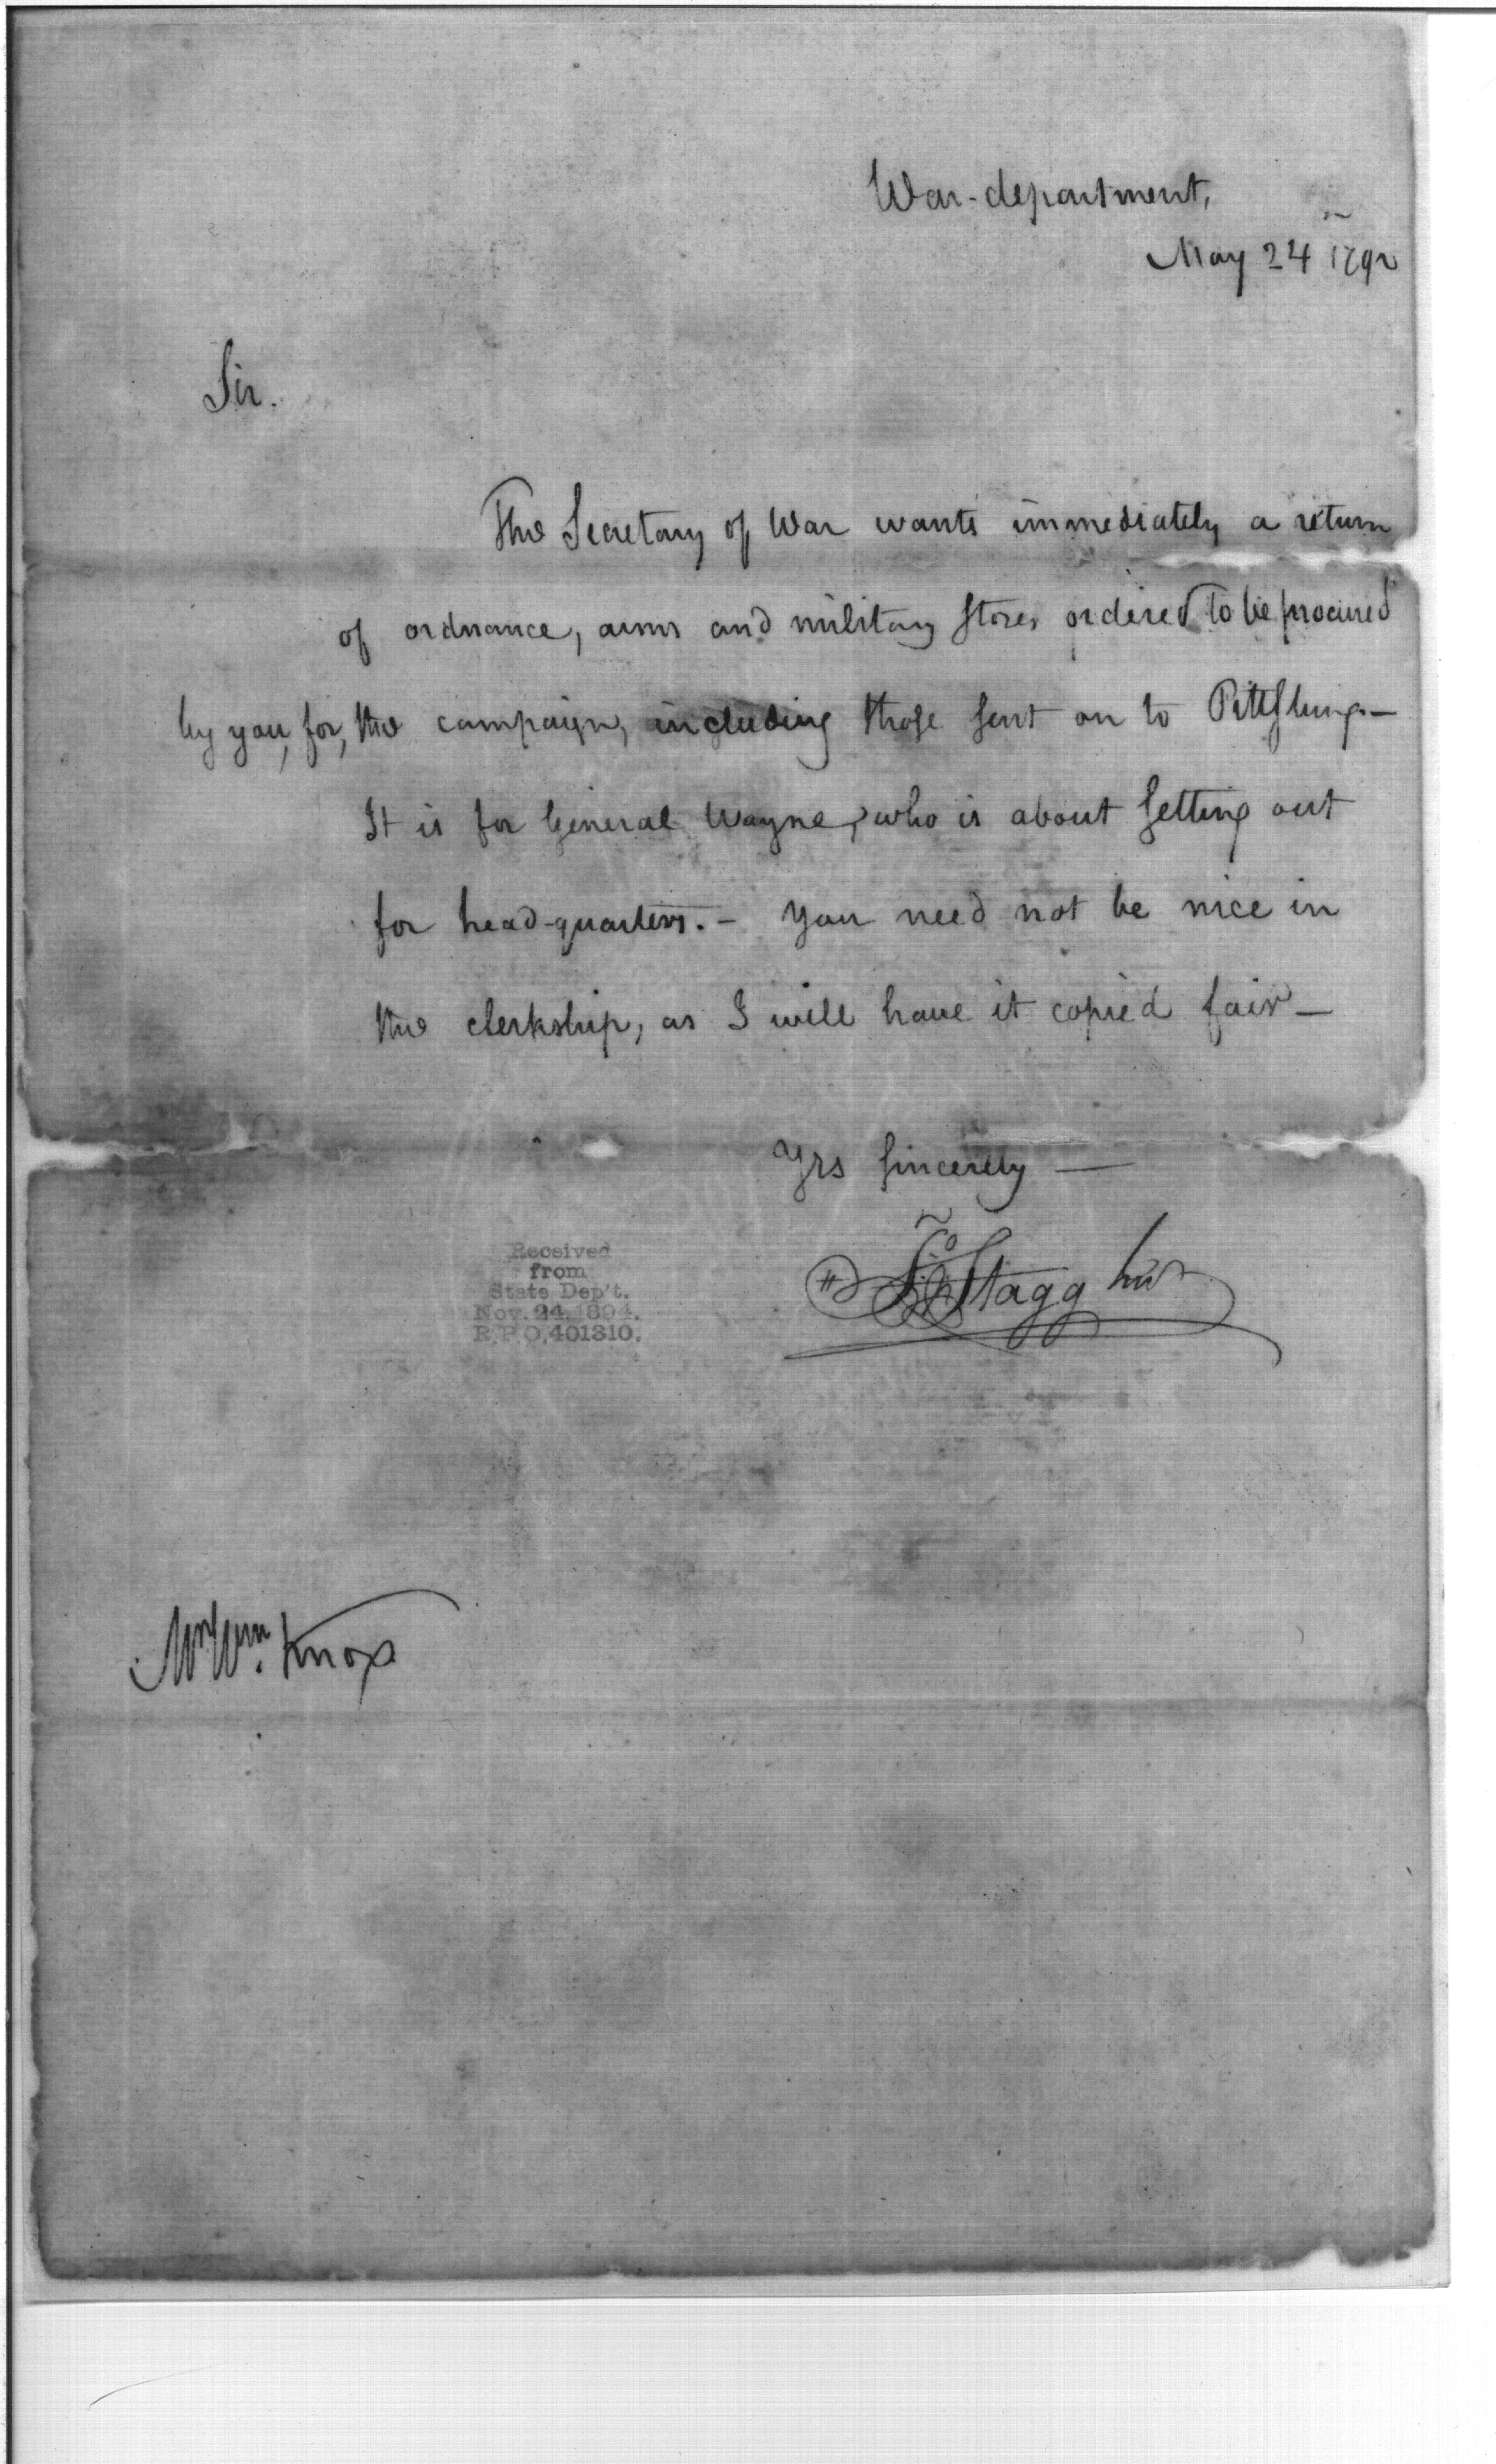 War-department,
May 24 1792
Sir.
The Secretary of War wants immediately a return
of ordnance, arms and military stores ordered to be procured
by you, for, the campaign, including those sent on to Pittsburg.—
It is for General Wayne, who is about setting out
for head-quarters.— You need not be nice in
the clerkship, as I will have it copied fair—
Yrs sincerely —
Jno Stagg Junr
Received
from
State Dep't.
Nov. 24, 1894.
R.P.O, 401310.
Mr Wm. Knox